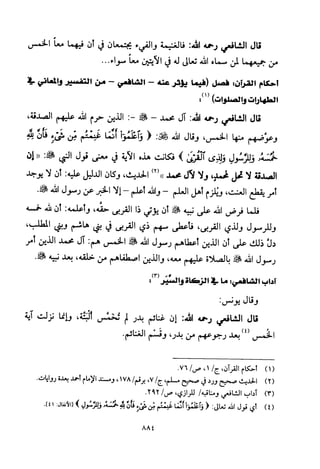 قال الشافعي رحمه الله: فالغنيمة والفيء يجتمعان في أن فيهما معاً الخمس
من جميعهما لمن سماه الله تعالى له في الآيتين معاً سواء...
أحكام القرآن، فصل (فيما يؤثر عنه - الشافعي - من التفسير والمعاني في
الطهارات والصلوات) (١):
قال الشافعي رحمه الله: آل محمد - ﷺ - الذين حرم الله عليهم الصدقة،
وعوّضهم منها الخمس، وقال الله ﷻ: ﴿ وَاعْلَمُوا أَنَّمَا غَنِمْتُم مِّن شَيْءٍ فَأَنَّ لِلَّهِ
خُمُسَهُ وَلِلرَّسُولِ وَلِذِي الْقُرْبَى ﴾ فكانت هذه الآية في معنى قول النبي ﷺ: «إن
الصدقة لا تحل لمحمد، ولا لآل محمد» (٢) الحديث، وكان الدليل عليه: أن لا يوجد
أمر يقطع العنت، ويلزم أهل العلم - والله أعلم - إلا الخبر عن رسول الله ﷺ.
فلما فرض الله على نبيه ﷺ أن يؤتي ذا القربى حقه، وأعلمه: أن لله خمسه
وللرسول ولذي القربى، فأعطى سهم ذي القربى في بني هاشم وبني المطلب،
دلّ ذلك على أن الذين أعطاهم رسول الله ﷺ الخمس هم: آل محمد الذين أمر
رسول الله ﷺ بالصلاة عليهم معه، والذين اصطفاهم من خلقه، بعد نبيه ﷺ.
آداب الشافعي: ما في الزكاة والسِّيَر (٣):
وقال يونس:
قال الشافعي رحمه الله: إن غنائم بدر لم تُخمَّس ألبتّة، وإنما نزلت آية
الخمس (٤) بعد رجوعهم من بدر، وقَسْم الغنائم.
(١) أحكام القرآن، ج/١، ص/٧٦.
(٢) الحديث صحيح ورد في صحيح مسلم، ج/٧، برقم/١٧٨، ومسند الإمام أحمد بعدة روايات.
(٣) آداب الشافعي ومناقبه/ للرازي، ص/٢٩٢.
(٤) أي قول الله تعالى: ﴿ وَاعْلَمُوا أَنَّمَا غَنِمْتُم مِّن شَيْءٍ فَأَنَّ لِلَّهِ خُمُسَهُ وَلِلرَّسُولِ ﴾ [الأنفال: ٤١].
٨٨٤